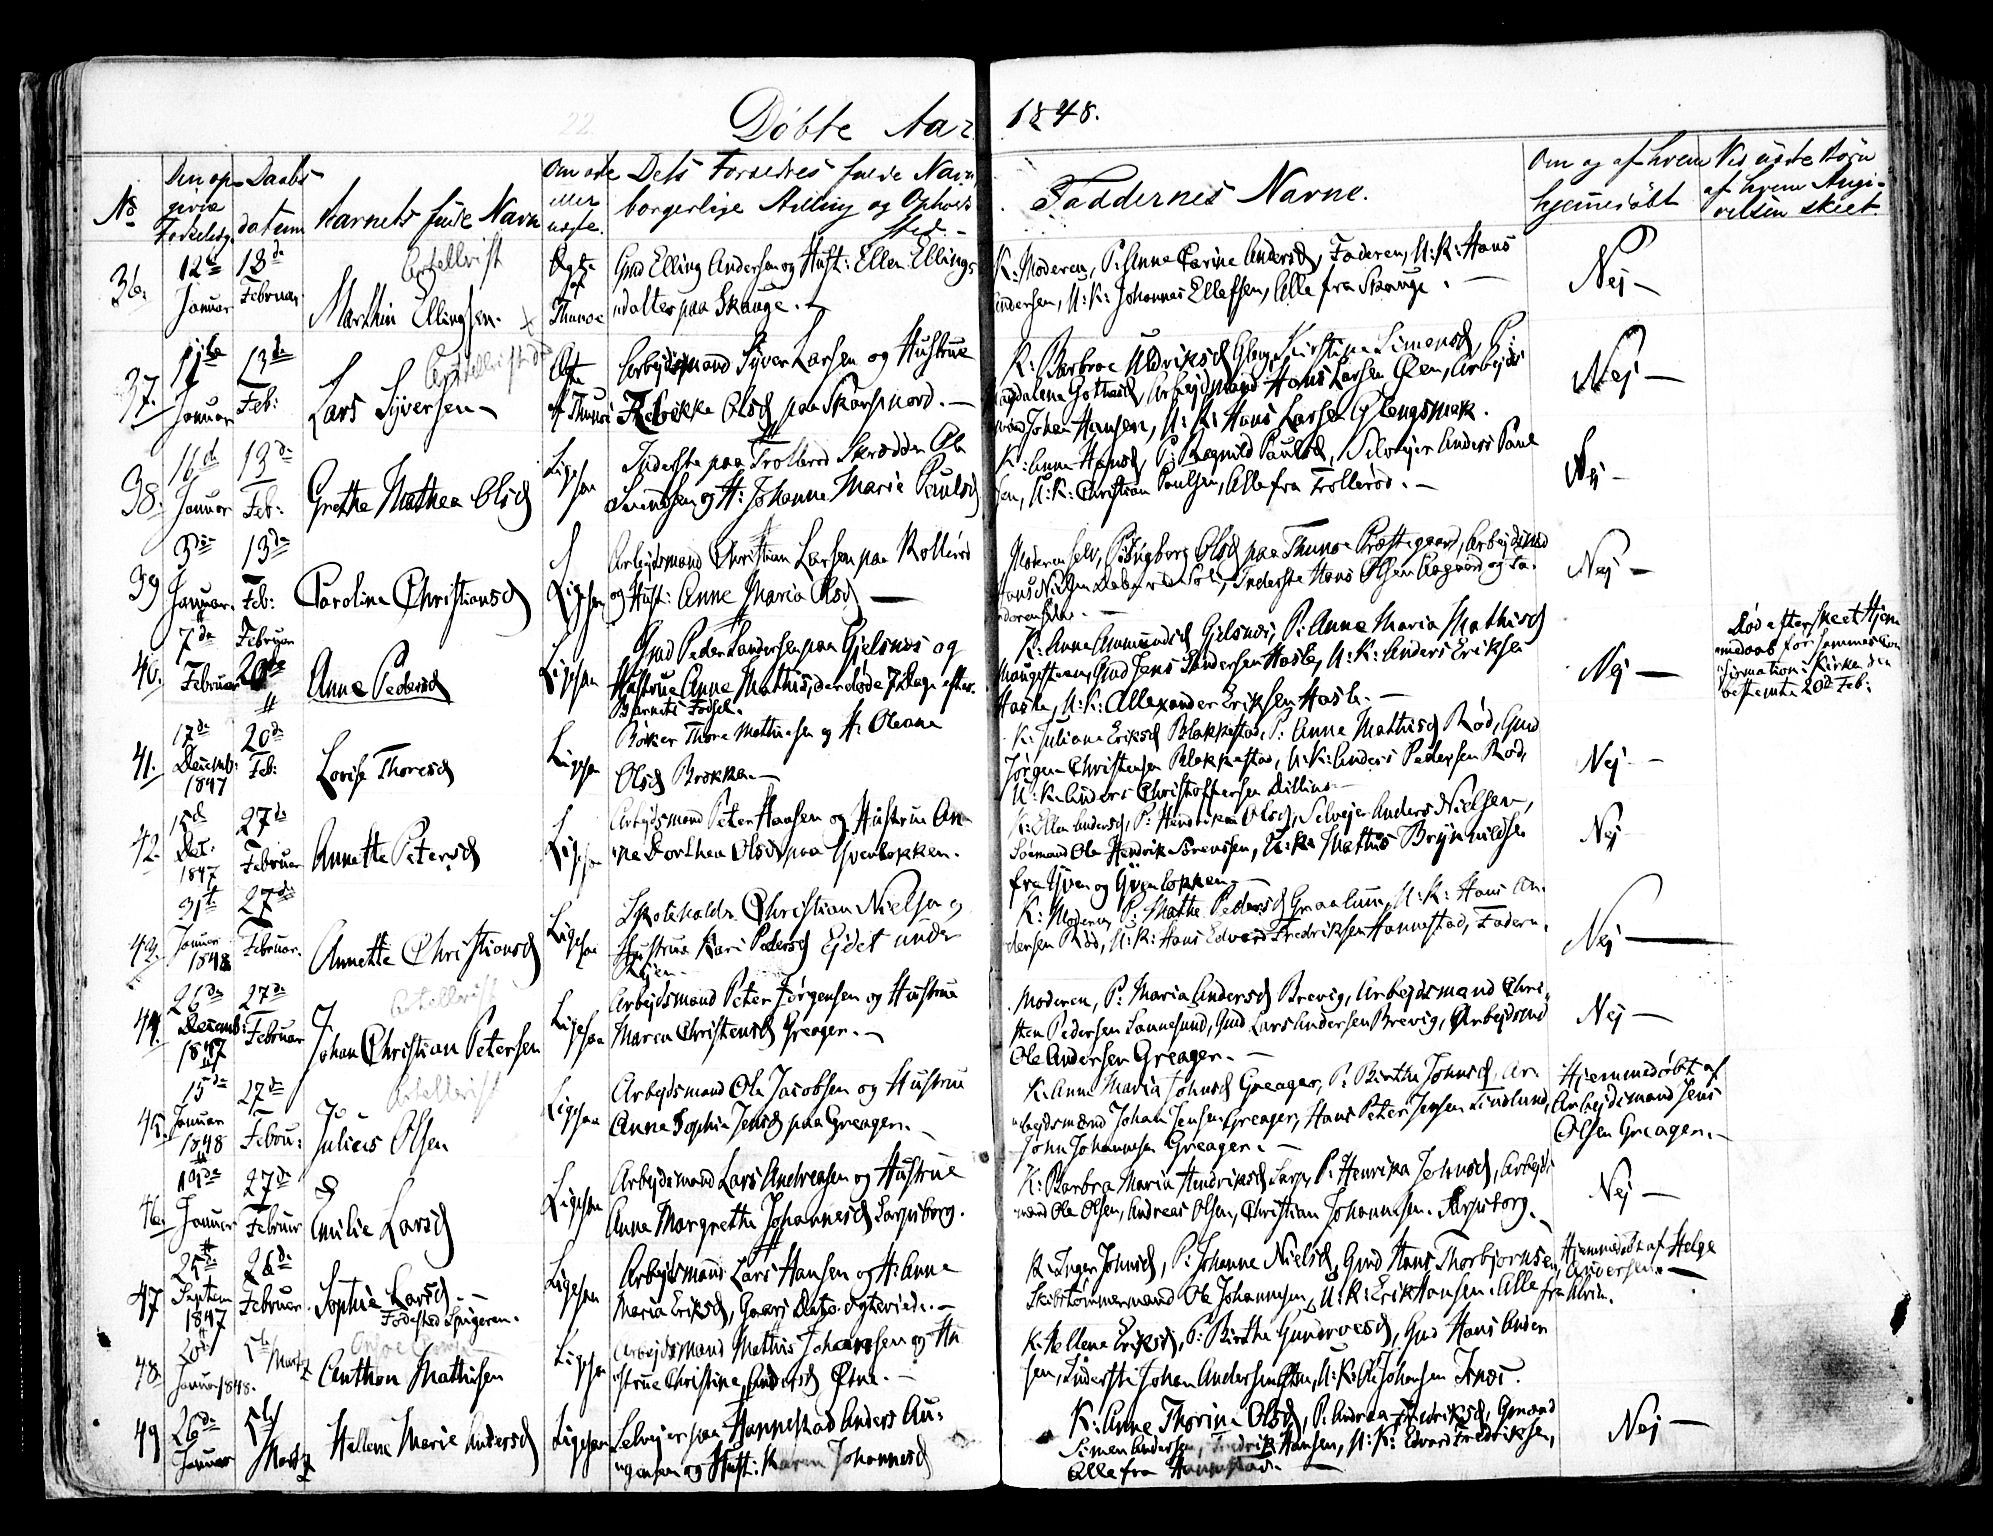 Døbte Aar 1848.
No
Den opgivne Fødselsdg.
Daabsdatum
Barnets fulde Navn
Om ægte eller uægte.
Dets Forældres fulde Navn, borgerlige Stilling og Opholdssted.
Faddernes Navne.
Om og af hvem hjemmedøbt
Ved uægte Børn af hvem Angivelsen skeet.
36.
12te Januar
13de Februar
Marthin Ellingsen.
Ægte af Thunøe
Gmd Elling Andersen og Hust: Ellen Ellings
datter paa Skauge.
K: Moderen, P: Anne Carine Andersd, Faderen, U: K: Hans
Andersen, U: K: Johannes Ellefsen, Alle fra Skauge. —
Nej —
37.
11te Januar
13de Feb:
Lars Syversen
Ægte af Thunøe
Arbejdsmand Syver Larsen og Hustrue
Rebekka Olsd paa Skarpnord. —
K: Barbroe Uldriksd Gleng, Kirstine Simensd, P:
Magdalena Gothasd, Arbejdsmand Hans Larsen Øen, Arbejds
mand Johan Hansen, U: K: Hans Larsen Glengsmak.
Nej —
38.
16de Januar
13de Feb:
Grethe Mathea Olsd
Ligesaa
Inderste paa Trollerød Skrædder Ole
Svendsen og H: Johanne Marie Paulsd
K: Anne Hansd, P: Ragnild Paulsd, Selvejer Anders Paul
sen, U: K: Christian Paulsen, Alle fra Trollerød. —
Nej —
39
3die Januar.
13de Feb:
Caroline Christiansd
Ligesaa
Arbejdsmand Christian Larsen paa Rollerød
og Hust: Anne Maria Olsd —
Moderen selv, P: Ingborg Olsd paa Thunøe Præstegaard, Arbejdsmd
Hans Nielsen, Inderste Hans Olsen Aagaard og Fa-
deren selv. —
Nej —
40.
7de Februar
Februar 20de
Anne Pedersd
Ligesaa
Gmd Peder Sandersen paa Gjelsnæs og
Hustrue Anne Mathisd, der døde 7 Dage efter
Barnets Fødsel.
K: Anne Amundsd Gjelsnæs, P: Anne Maria Mathisd
Haugesteen, Gmd Jens Sandersen Hasle, U: K: Anders Eriksen
Hasle, U: K: Allexander Eriksen Hasle. —
Nej —
Død efter skeet Hjem
medaab før sammes Con
firmation i Kirken den
bestemte 20de Feb:
41.
17de Decemb: 1847
20de Feb:
Lovise Thoresd
Ligesaa
Bøkker Thore Mathiesen og H: Oleane
Olsd Brekke —
K: Juliane Eriksd Blakkestad, P: Anne Mathisd Rød, Gmd
Jørgen Christensen Blakkestad, U: K: Anders Pedersen Rød,
U: K: Anders Christoffersen Dillius —
Nej —
42.
15de Dec: 1847
27de Februar
Annette Petersd
Ligesaa
Arbejdsmand Peter Hansen og Hustrue An-
ne Dorthea Olsd paa Yvenløkken.
K: Ellen Andersd, P: Hendrikea Olsd, Selvejer Anders Nielsen,
Sømand Ole Hendrik Sørenssen, U: K: Mathis Brynnildsen
fra Yven og Yvenløkken. —
Nej
43.
31te Januar 1848
27de Februar.
Annette Christiansd
Ligesaa
Skoleholder Christian Nielsen og
Hustrue Kari Pedersd Eidet under
K: Moderen, P: Mathe Pedersd Graalum, U: K: Hans An-
dersen Rød, U: K: Hans Edvard Fredriksen Hannestad, Faderen.
Nej —
44.
26de Decemb: 1847
27de Februar
Johan Christian Petersen
Ligesaa
Arbejdsmand Peter Jørgensen og Hustrue
Maren Christensd Greager. —
Moderen, P: Maria Andersd Brevig, Arbejdsmand Chri-
sten Pedersen Sannesund, Gmd Lars Andersen Brevig, Arbejdsmd
Ole Andersen Greager. —
Nej —
45.
15de Januar 1848
27de Febru:
Julius Olsen
Ligesaa
Arbejdsmand Ole Jacobsen og Hustrue
Anne Sophie Jensd paa Greager. —
K: Anne Maria Johnsd Greager, P: Birthe Johnsd, Ar-
bejdsmand Johan Jensen Greager, Hans Peter Jensen Lindlund,
John Johannesen Greager. —
Hjemmedøbt af
Arbejdsmand Jens
Olsen Greager. —
46.
19de Januar
27de Februar
Emilie Larsd
Ligesaa
Arbejdsmand Lars Andreasen og Hustrue
Anne Margrethe Johannesd Sarpsborg.
K: Barbra Maria Hendriksd Sarp, P: Henrika Johnsd, Arbejds
mand Ole Olsen, Andreas Olsen, Christian Johannesen. Sarpsborg. —
Nej —
47
25de Septem 1847
26de Februar
Sophie Larsd. —
Fødested Spigeren.
Ligesaa
Arbejdsmand Lars Hansen og H: Anne
Maria Eriksd,
K: Inger Johnsd, P: Johanne Nielsd, Gmd Hans Thorbjørnsen,
Skibstømmermand Ole Johannesen, U: K: Erik Hansen. Alle fra Alvim.
Hjemmedøbt af Helge
Andersen. —
48.
20de Januar 1848.
5te Martz
Anthon Mathisen
Ligesaa
Arbejdsmand Mathis Johannesen og Hu
strue Christine Andersd Øtne. —
K: Hellene Eriksd, P: Birthe Gundersd, Gmd Hans Ander
sen, Inderste Johan Andersen, U: K: Ole Johansen
49
26de Januar
5te Martz
Hellene Marie Andersd
Ligesaa
Selvejer paa Hannestad Anders Au-
gensen og Hust: Karen Johannesd
K: Anne Thorine Olsd, P: Andrea Fredriksd, Gmand
Simen Andersen, Fredrik Hansen, U: K: Edvard Fredriksen,
Alle fra Hannestad. —
Nej —